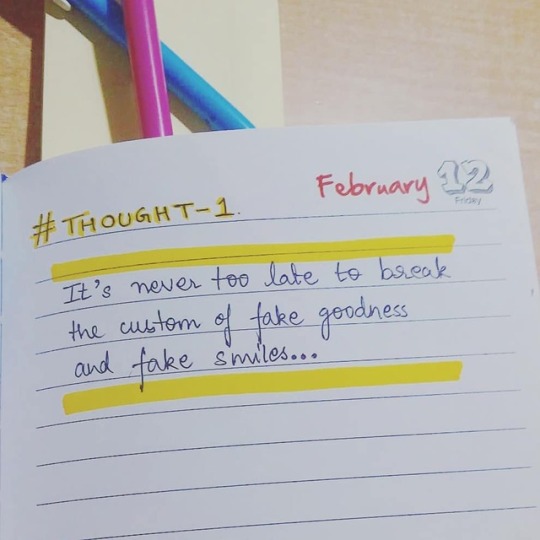 February 12
Friday
#THOUGHT-1.
It's never too late to break
the custom of fake goodness
and fake smiles...